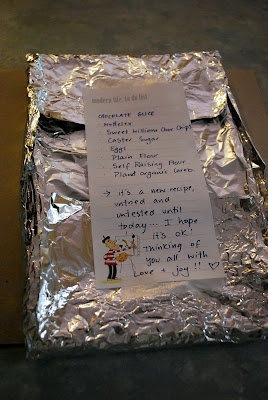 modern life, to do list
CHOCOLATE SLICE
Nuttelex
Sweet Williams Choc Chips
Caster Sugar
Eggs
Plain Flour
Self Raising Flour
Plant organic
→ it's a new recipe,
untried and
untested until
today... I hope
it's OK!
Thinking of
you all with
love + joy!! ♡